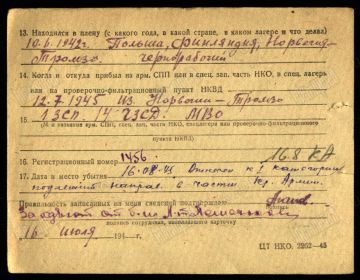 13. Находился в плену (с какого года, в какой стране, в каком лагере и что делал)
10.6.1942г. Польша, Финляндия, Норвегия-
Тромзо чернорабочий
14. Когда и откуда прибыл на арм. СПП или в спец. зап. часть НКО, в спец. лагерь
или на проверочно-фильтрационный пункт НКВД
12.7.1945 из Норвегии-Тромзо
15. 1 ЗСП. 14 ЗСД. МВО
(№ и название арм. СПП, спец. зап. части, спец. лагеря или проверочно-фильтрационного
пункта НКВД)
16. Регистрационный номер 1456 168 КА
17. Дата и место убытия 16.08.45 категории
подлежит направ. в части Кр. Армии.
Правильность записанных на меня сведений подтверждаю
подпись
16 июля 194 г.
ЦТ НКО. 2262—45